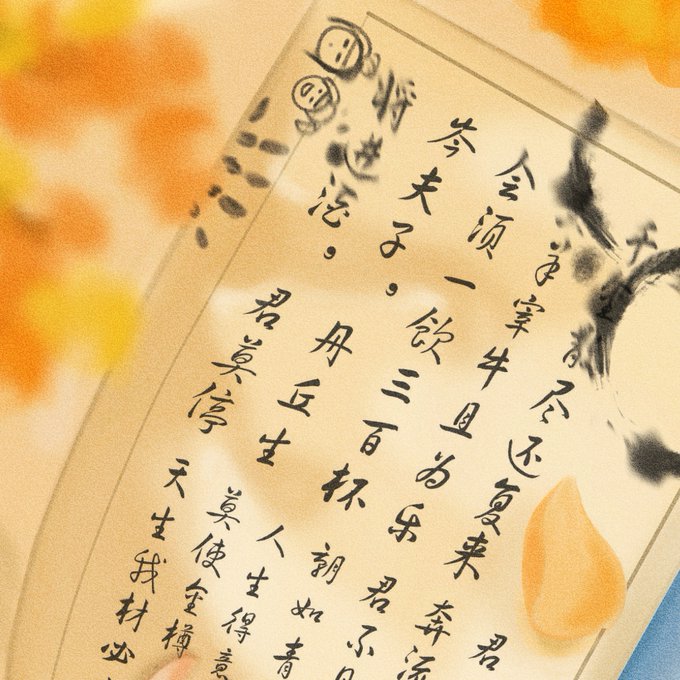 千金散尽还复来
羊宰牛且为乐
会须一饮三百杯
岑夫子，丹丘生
将进酒，君莫停
君
奔流
君不见
朝如青
人生得意
莫使金樽
天生我材必